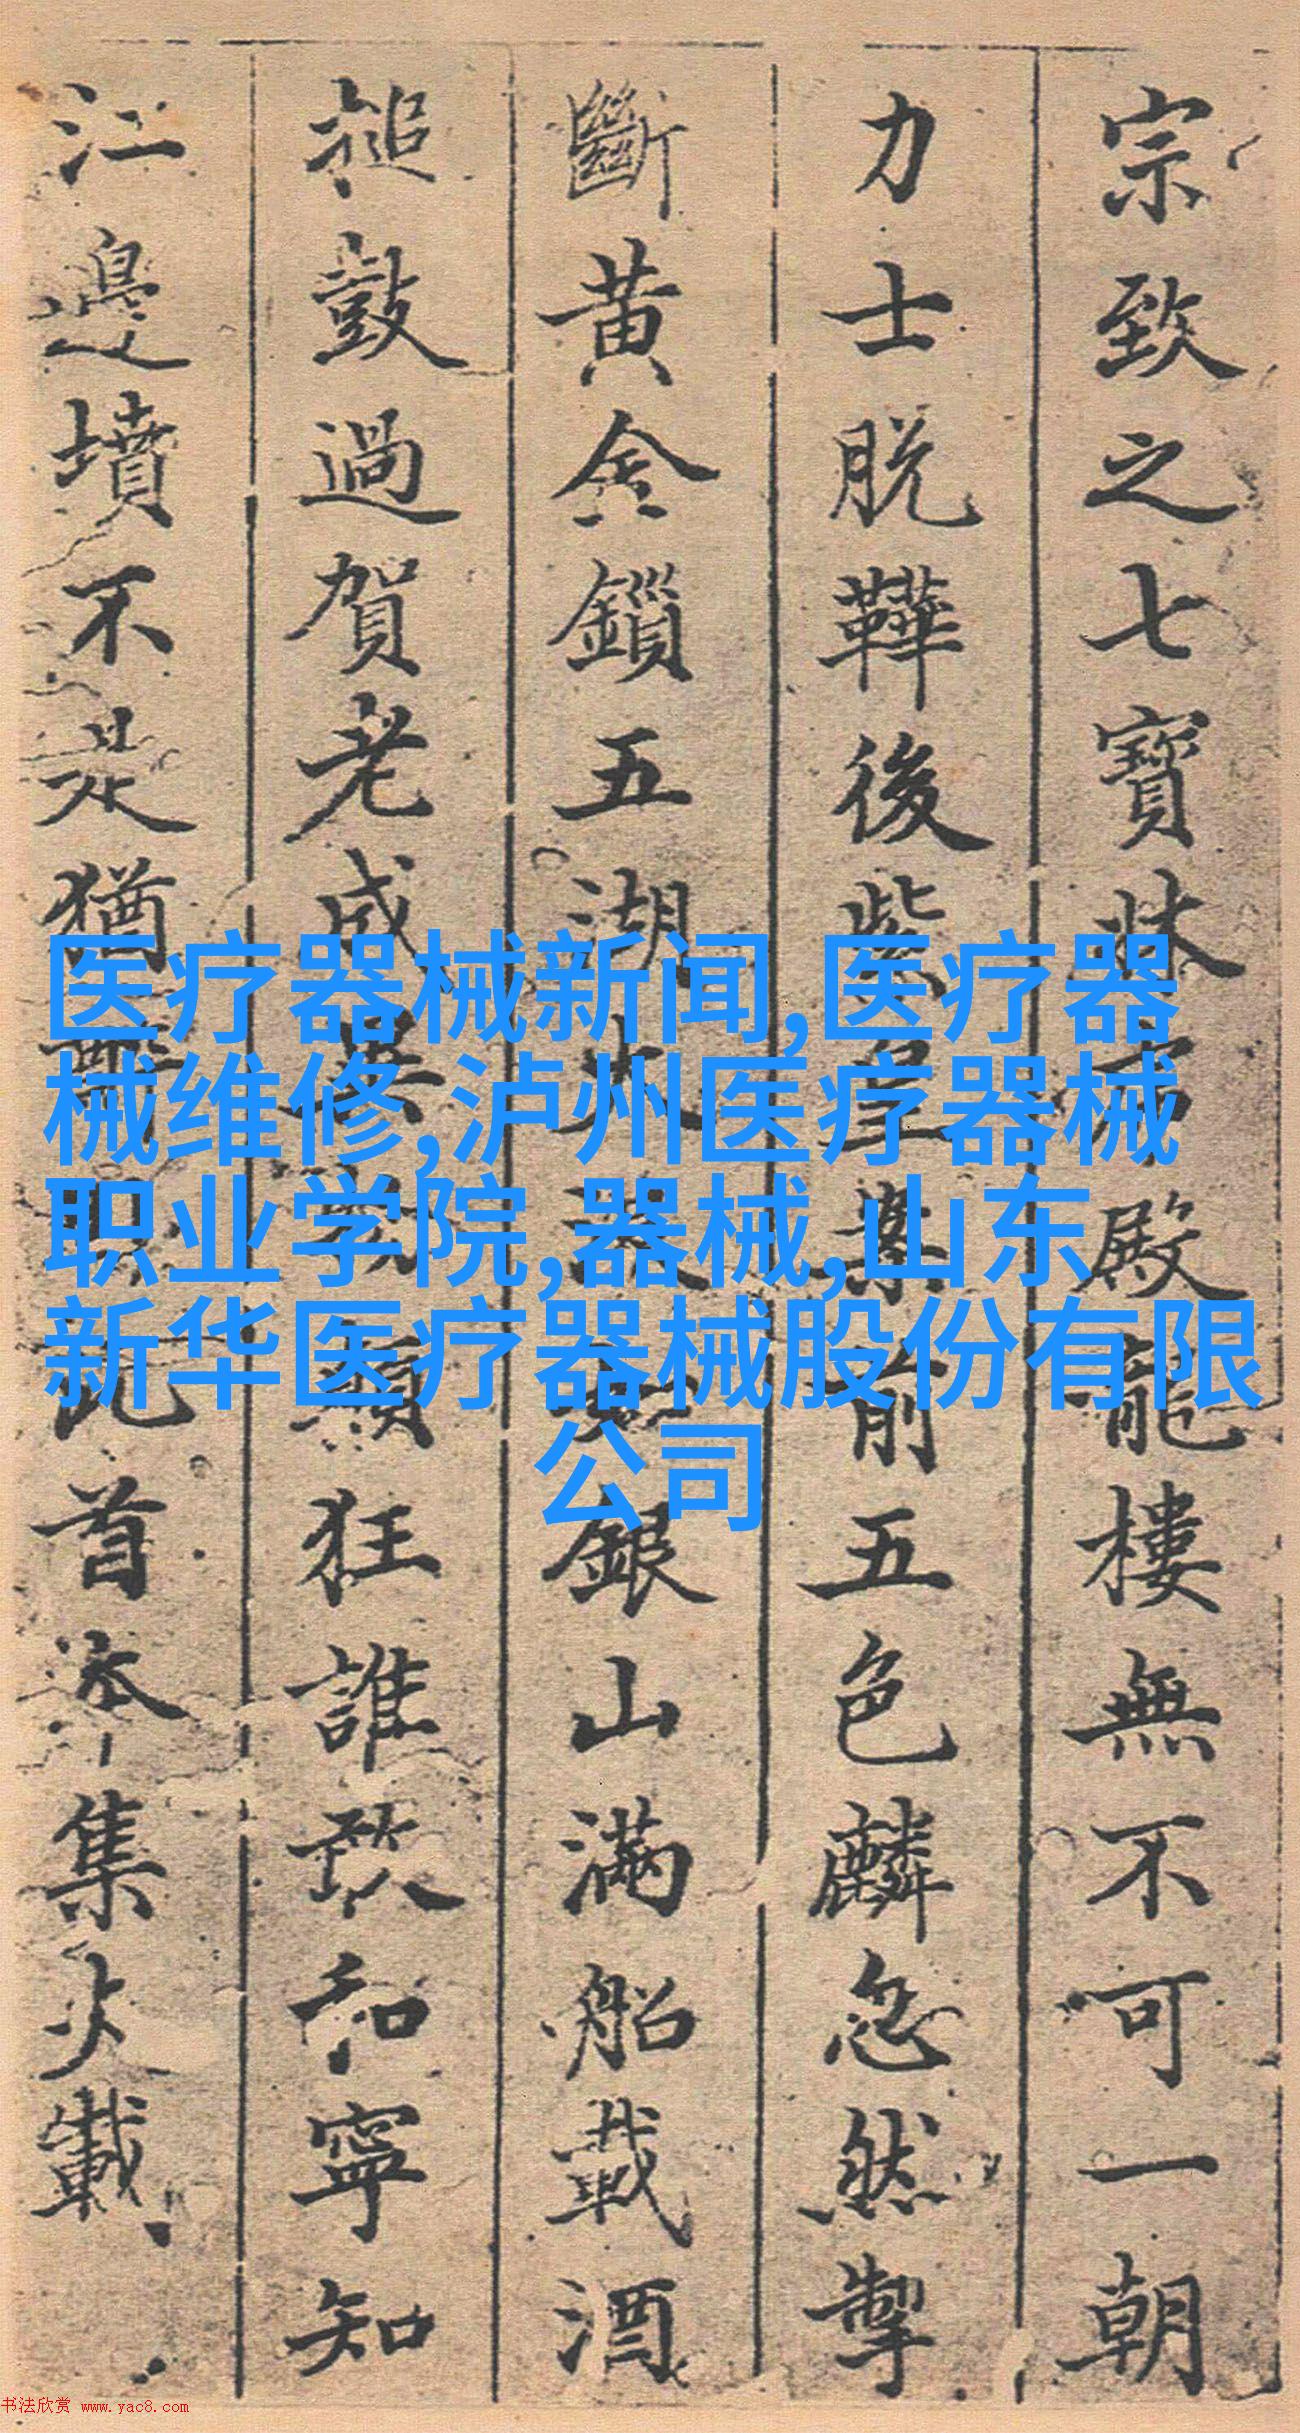 宗致之七寶牀殿龍樓無不可一朝
力士脱鞾後紫皇案前五色麟忽然掣
斷黄金鎖五湖大銀山滿船載酒
搥鼓過賀老成異物顛狂誰敢和寧知
江邊墳不是猶醉臥此首本集少載
医疗器械新闻,医疗器
械维修,泸州医疗器械
职业学院,器械,山东
新华医疗器械股份有限
公司
书法欣赏 www.yac8.com